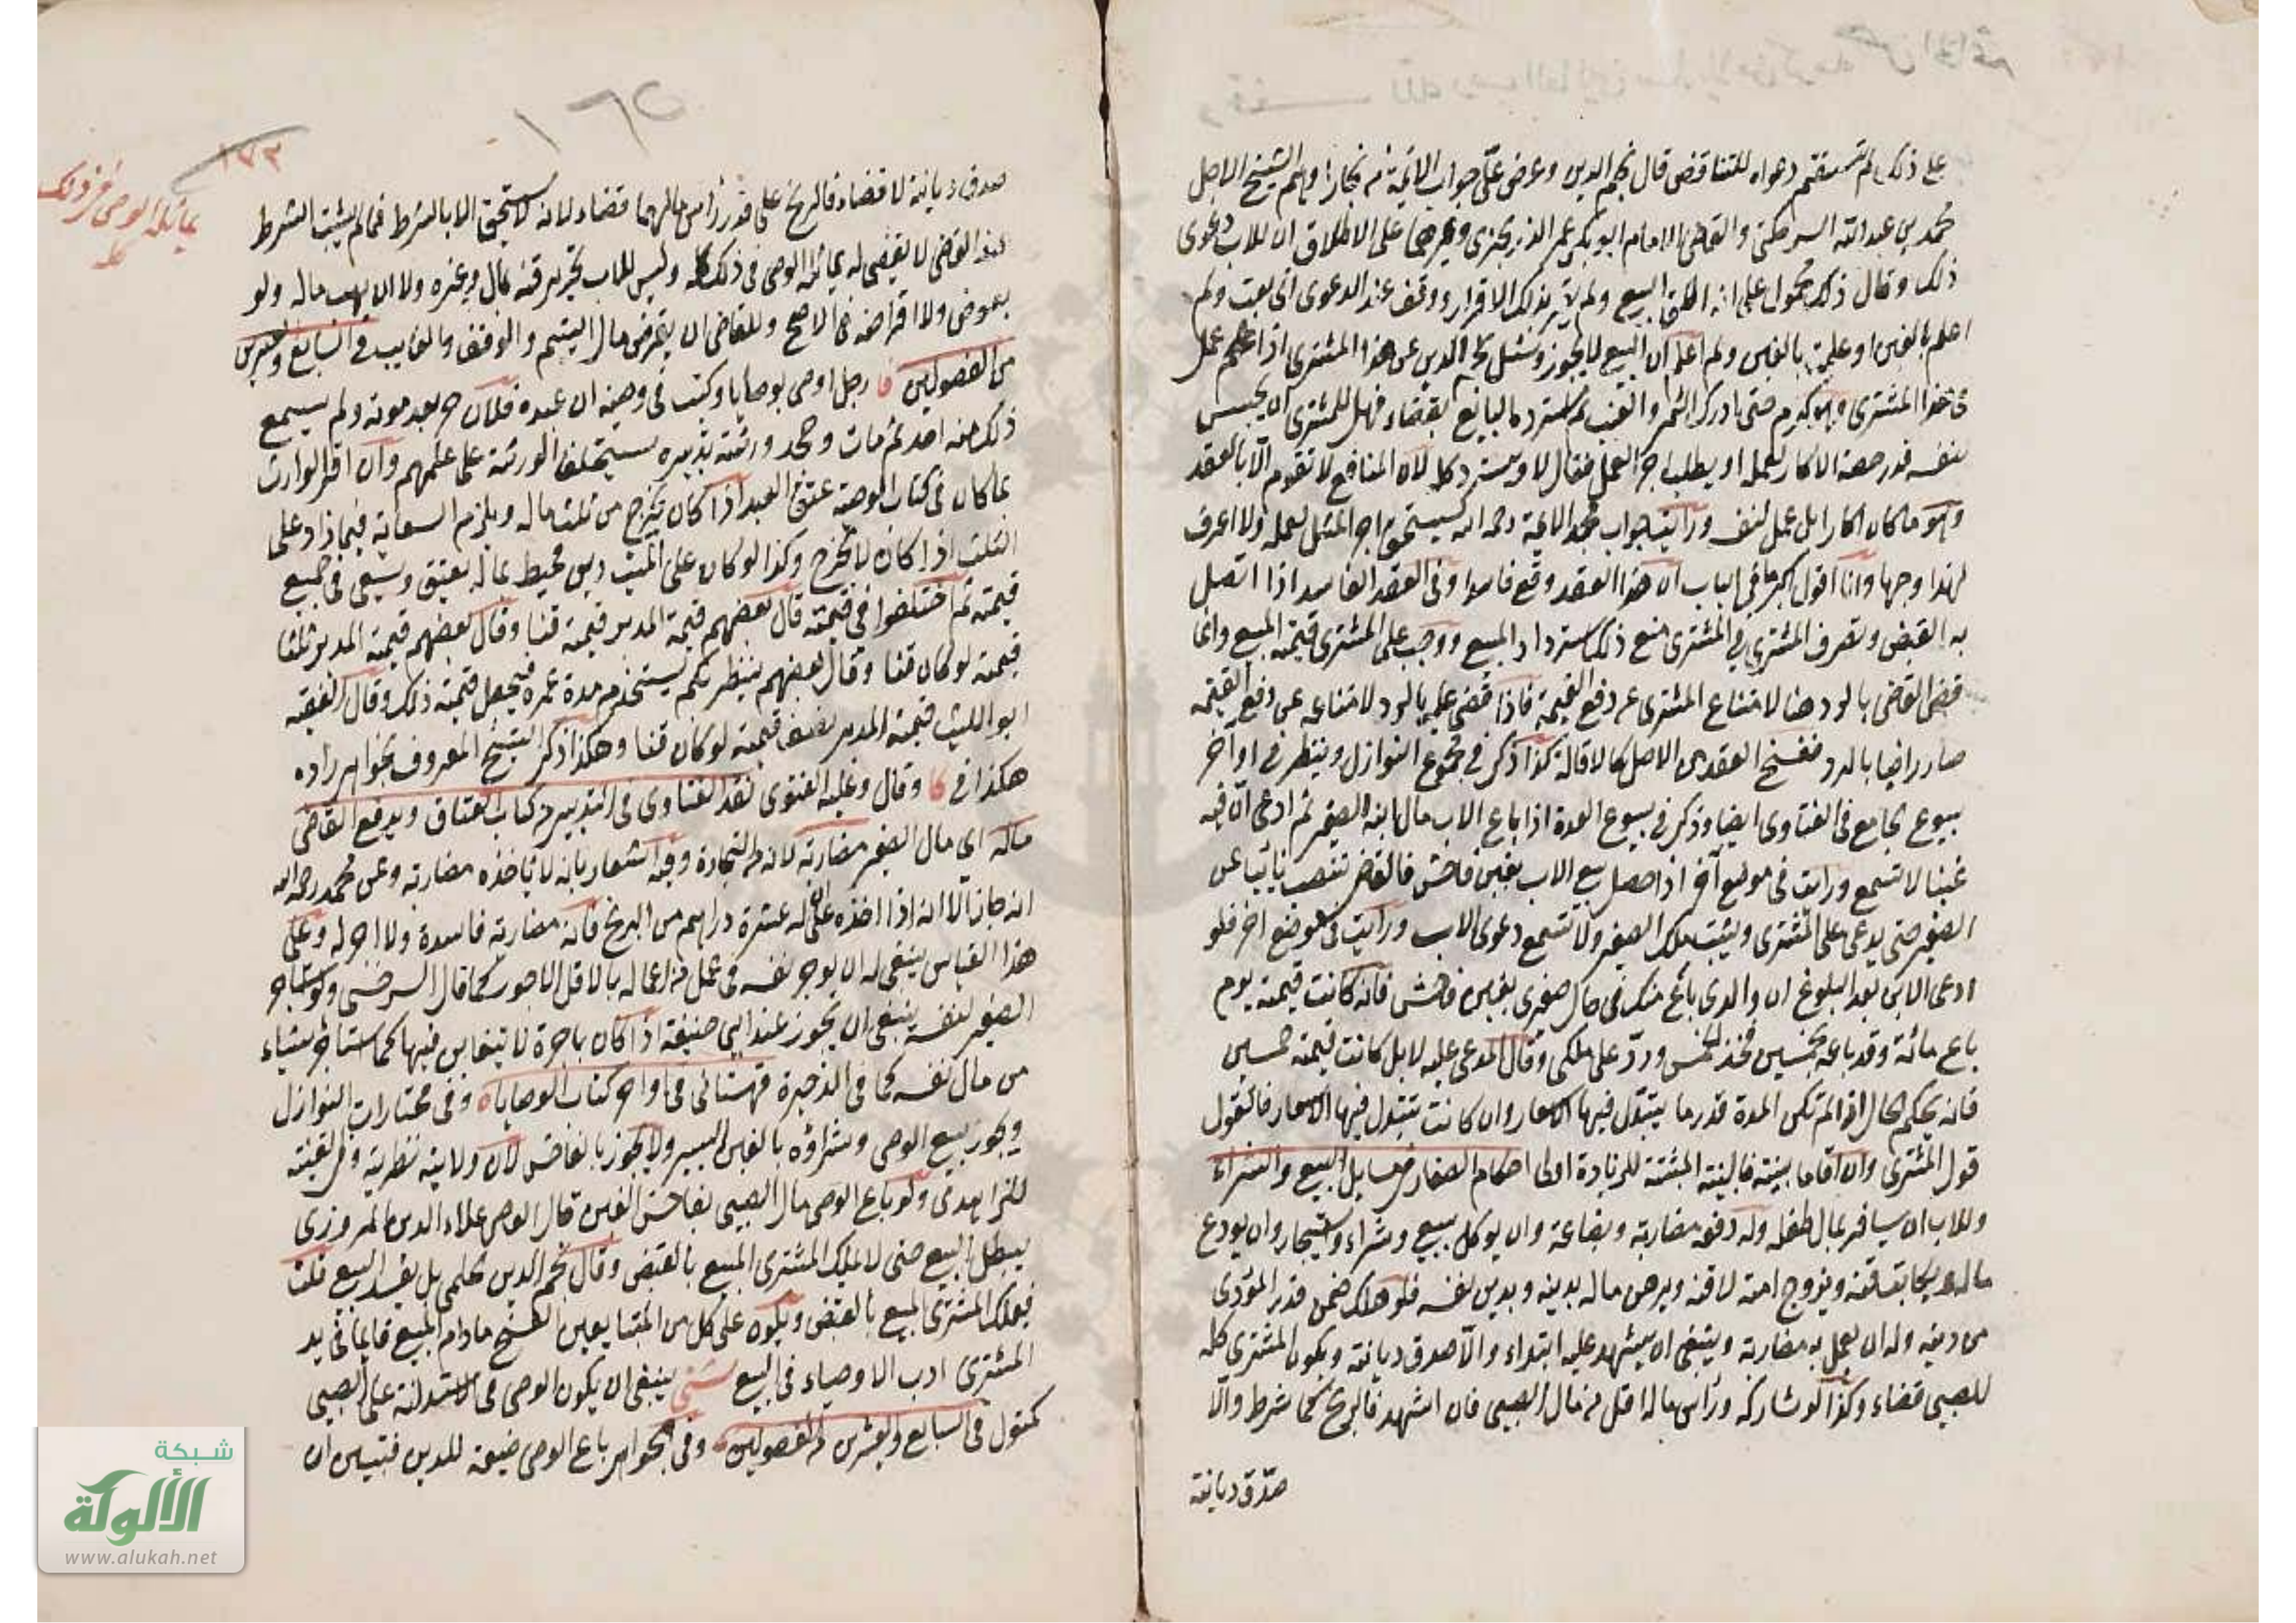 على ذلك لم تستقم دعواه للتناقض قال نجم الدين وعرض علي جواب الائمة من بخارا وفيهم الشيخ الاجل
محمد بن عبد الله السرخكتي والقاضي الامام ابو بكر عمر على الاطلاق ان للاب دعوى
ذلك وقال ذلك محمول على انه اطلق البيع ولم يقر بذلك الاقرار ووقف عند الدعوى اني بعت ولم
اعلم بالغبن او علمت بالغبن ولم اعلم ان البيع لا يجوز وسئل نجم الدين عن هذا المشتري اذا عمل
في هذا المشترى وهو كرم حتى ادرك الثمر والعنب ثم استرد البايع بقضاء فهل للمشتري ان يحبس
لنفسه قدر حصة الاكار لعمله او يطلب اجر العمل فقال لا ويسترد كله لان المنافع لا تقوم الا بالعقد
وهو ما كان اكارا بل عمل لنفسه ورأيت جواب مجد الائمة رحمه الله يستحق اجر المثل لعمله ولا اعرف
لهذا وجها وانا اقول في الباب ان هذا العقد وقع فاسدا وفي العقد الفاسد اذا اتصل
به القبض وتصرف المشتري في المشترى منع ذلك استرداد المبيع ووجب على المشتري قيمة المبيع وانما
قضى القاضي بالرد هنا لامتناع المشتري عن دفع القيمة فاذا قضي عليه بالرد لامتناعه عن دفع القيمة
صار راضيا بالرد فنفسخ العقد من الاصل كالاقالة كذا ذكر في مجموع النوازل وينظر في اواخر
بيوع الجامع في الفتاوى ايضا وذكر في بيوع العدة اذا باع الاب مال ابنه الصغير ثم ادعى ان فيه
غبنا لا تسمع ورايت في موضع آخر اذا حصل بيع الاب بغبن فاحش فالقاضي تنصب نائبا عن
الصغير حتى يدعي على المشتري ويثبت ملك الصغير ولا تسمع دعوى الاب ورأيت في موضع اخر فلو
ادعى الابن بعد البلوغ ان والدي باع منك في حال صغري بغبن فاحش فانه كانت قيمته يوم
باع مائة وقد باعه بخمسين فخذ الخمسين ورد علي ملكي وقال المدعى عليه لا بل كانت قيمته خمسين
فانه يحكم الحال اذا لم تكن المدة قدر ما يتبدل فيها الاسعار وان كانت تتبدل فيها الاسعار فالقول
قول المشتري وان اقاما بينة فالبينة المثبتة للزيادة اولى احكام الصغار من مسايل البيع والشراء
وللاب ان يسافر بمال طفله وله دفعه مضاربة وبضاعة وان يوكل ببيع وشراء واستيجار وان يودع
ماله ويكاتب قنه ويزوج امته لا قنه ويرهن ماله بدينه وبدين نفسه فلو هلك ضمن قدر المؤدى
من دينه وله ان يعمل به مضاربة وينبغي ان يشهد عليه ابتداء والا صدق ديانة ويكون المشترى كله
للصبي قضاء وكذا لو شاركه ورأس ماله اقل من مال الصبي فان اشهد فالربح كما شرط والا
صدق ديانة
١٧٣
بماثله الوصي في ذلك
كله
صدق ديانة لا قضاء فالربح على قدر رأس مالهما قضاء لانه لا يستحق الا بالشرط فما لم يثبت الشرط
عند القاضي لا يقضي له بماثله الوصي في ذلك كله وليس للاب تحرير قنه بمال وغيره ولا ان يهب ماله ولو
بعوض ولا اقراضه في الاصح وللقاضي ان يقرض مال اليتيم والوقف والغايب في السابع والعشرين
من الفصولين رجل اوصى بوصايا وكتب في وصيته ان عبده فلان حر بعد موته ولم يسمع
ذلك منه احد ثم مات وجحد ورثته تدبيره يستحلف الورثة على علمهم وان اقر الوارث
بما كان في كتاب الوصية عتق العبد اذا كان يخرج من ثلث ماله ويلزم السعاية فيما زاد على
الثلث اذا كان لا يخرج وكذا لو كان على الميت دين محيط بماله يعتق ويسعى في جميع
قيمته ثم اختلفوا في قيمته قال بعضهم قيمة المدبر قيمته قنا وقال بعضهم قيمة المدبر ثلثا
قيمته لو كان قنا وقال بعضهم ينظر بكم يستخدم مدة عمره فيجعل قيمته ذلك وقال الفقيه
ابو الليث قيمة المدبر نصف قيمته لو كان قنا وهكذا ذكر الشيخ المعروف بخواهر زاده
هكذا في وقال وعليه الفتوى نقد الفتاوى في التدبير من كتاب العتاق ويدفع القاضي
ماله اي مال الصغير مضاربة لانه من التجارة وفيه اشعار بانه لا يأخذه مضاربة وعن محمد رحمه الله
انه جاز الا انه اذا اخذه على ان له عشرة دراهم من الربح فانه مضاربة فاسدة ولا اجر له وعلى
هذا القياس ينبغي له ان يوجر نفسه في عمل من اعماله بالاقل الاجور كما قال السرخسي ولو استاجر
الصغير لنفسه ينبغي ان يجوز عند ابي حنيفة اذا كان باجرة لا يتغابن فيها كما استاجر شياء
من مال نفسه كما في الذخيرة قهستاني في اواخر كتاب الوصايا وفي مختارات النوازل
ويجوز بيع الوصي وشراؤه بالغبن اليسير ولا يجوز بالفاحش لان ولايته نظرية وفي القنية
للزاهدي ولو باع الوصي مال الصبي بفاحش الغبن قال القاضي علاء الدين المروزي
يبطل البيع حتى لا يملك المشتري المبيع بالقبض وقال نجم الدين حلمي بل يفسد البيع قلت
فيملك المشتري المبيع بالقبض ويكون على كل من المتبايعين الفسخ مادام المبيع قايما في يد
المشتري ادب الاوصياء في البيع ينبغي ان يكون الوصي في الاستدانة على الصبي
كمتول في السابع والعشرين من الفصولين وفي الجواهر باع الوصي ضيعة للدين فتبين ان
شبكة
الألوكة
www.alukah.net